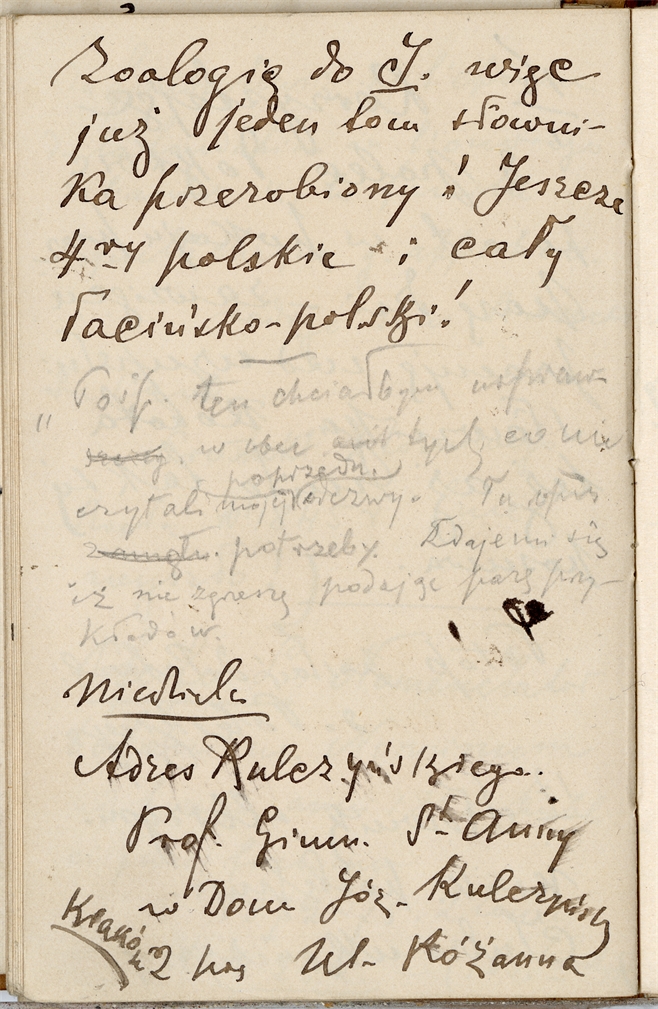 Zoologię do J. więc
już jeden tom słowni-
ka przerobiony! Jeszcze
4ry polskie i cały
łacińsko-polski!
" Pośp. ten chciałbym uspraw
w obec tych, co nie
poprzedn.
czytali mojej odezwy. Tu opis
potrzeby. Zdaje mi się
iż nie zgrzeszę podając parę przy-
kładów.
Niedziela
Adres Kulczyńskiego.
Prof. Gimn. St. Anny
w Dom Józ. Kulczyński
Kraków 2 Ul. Różanna